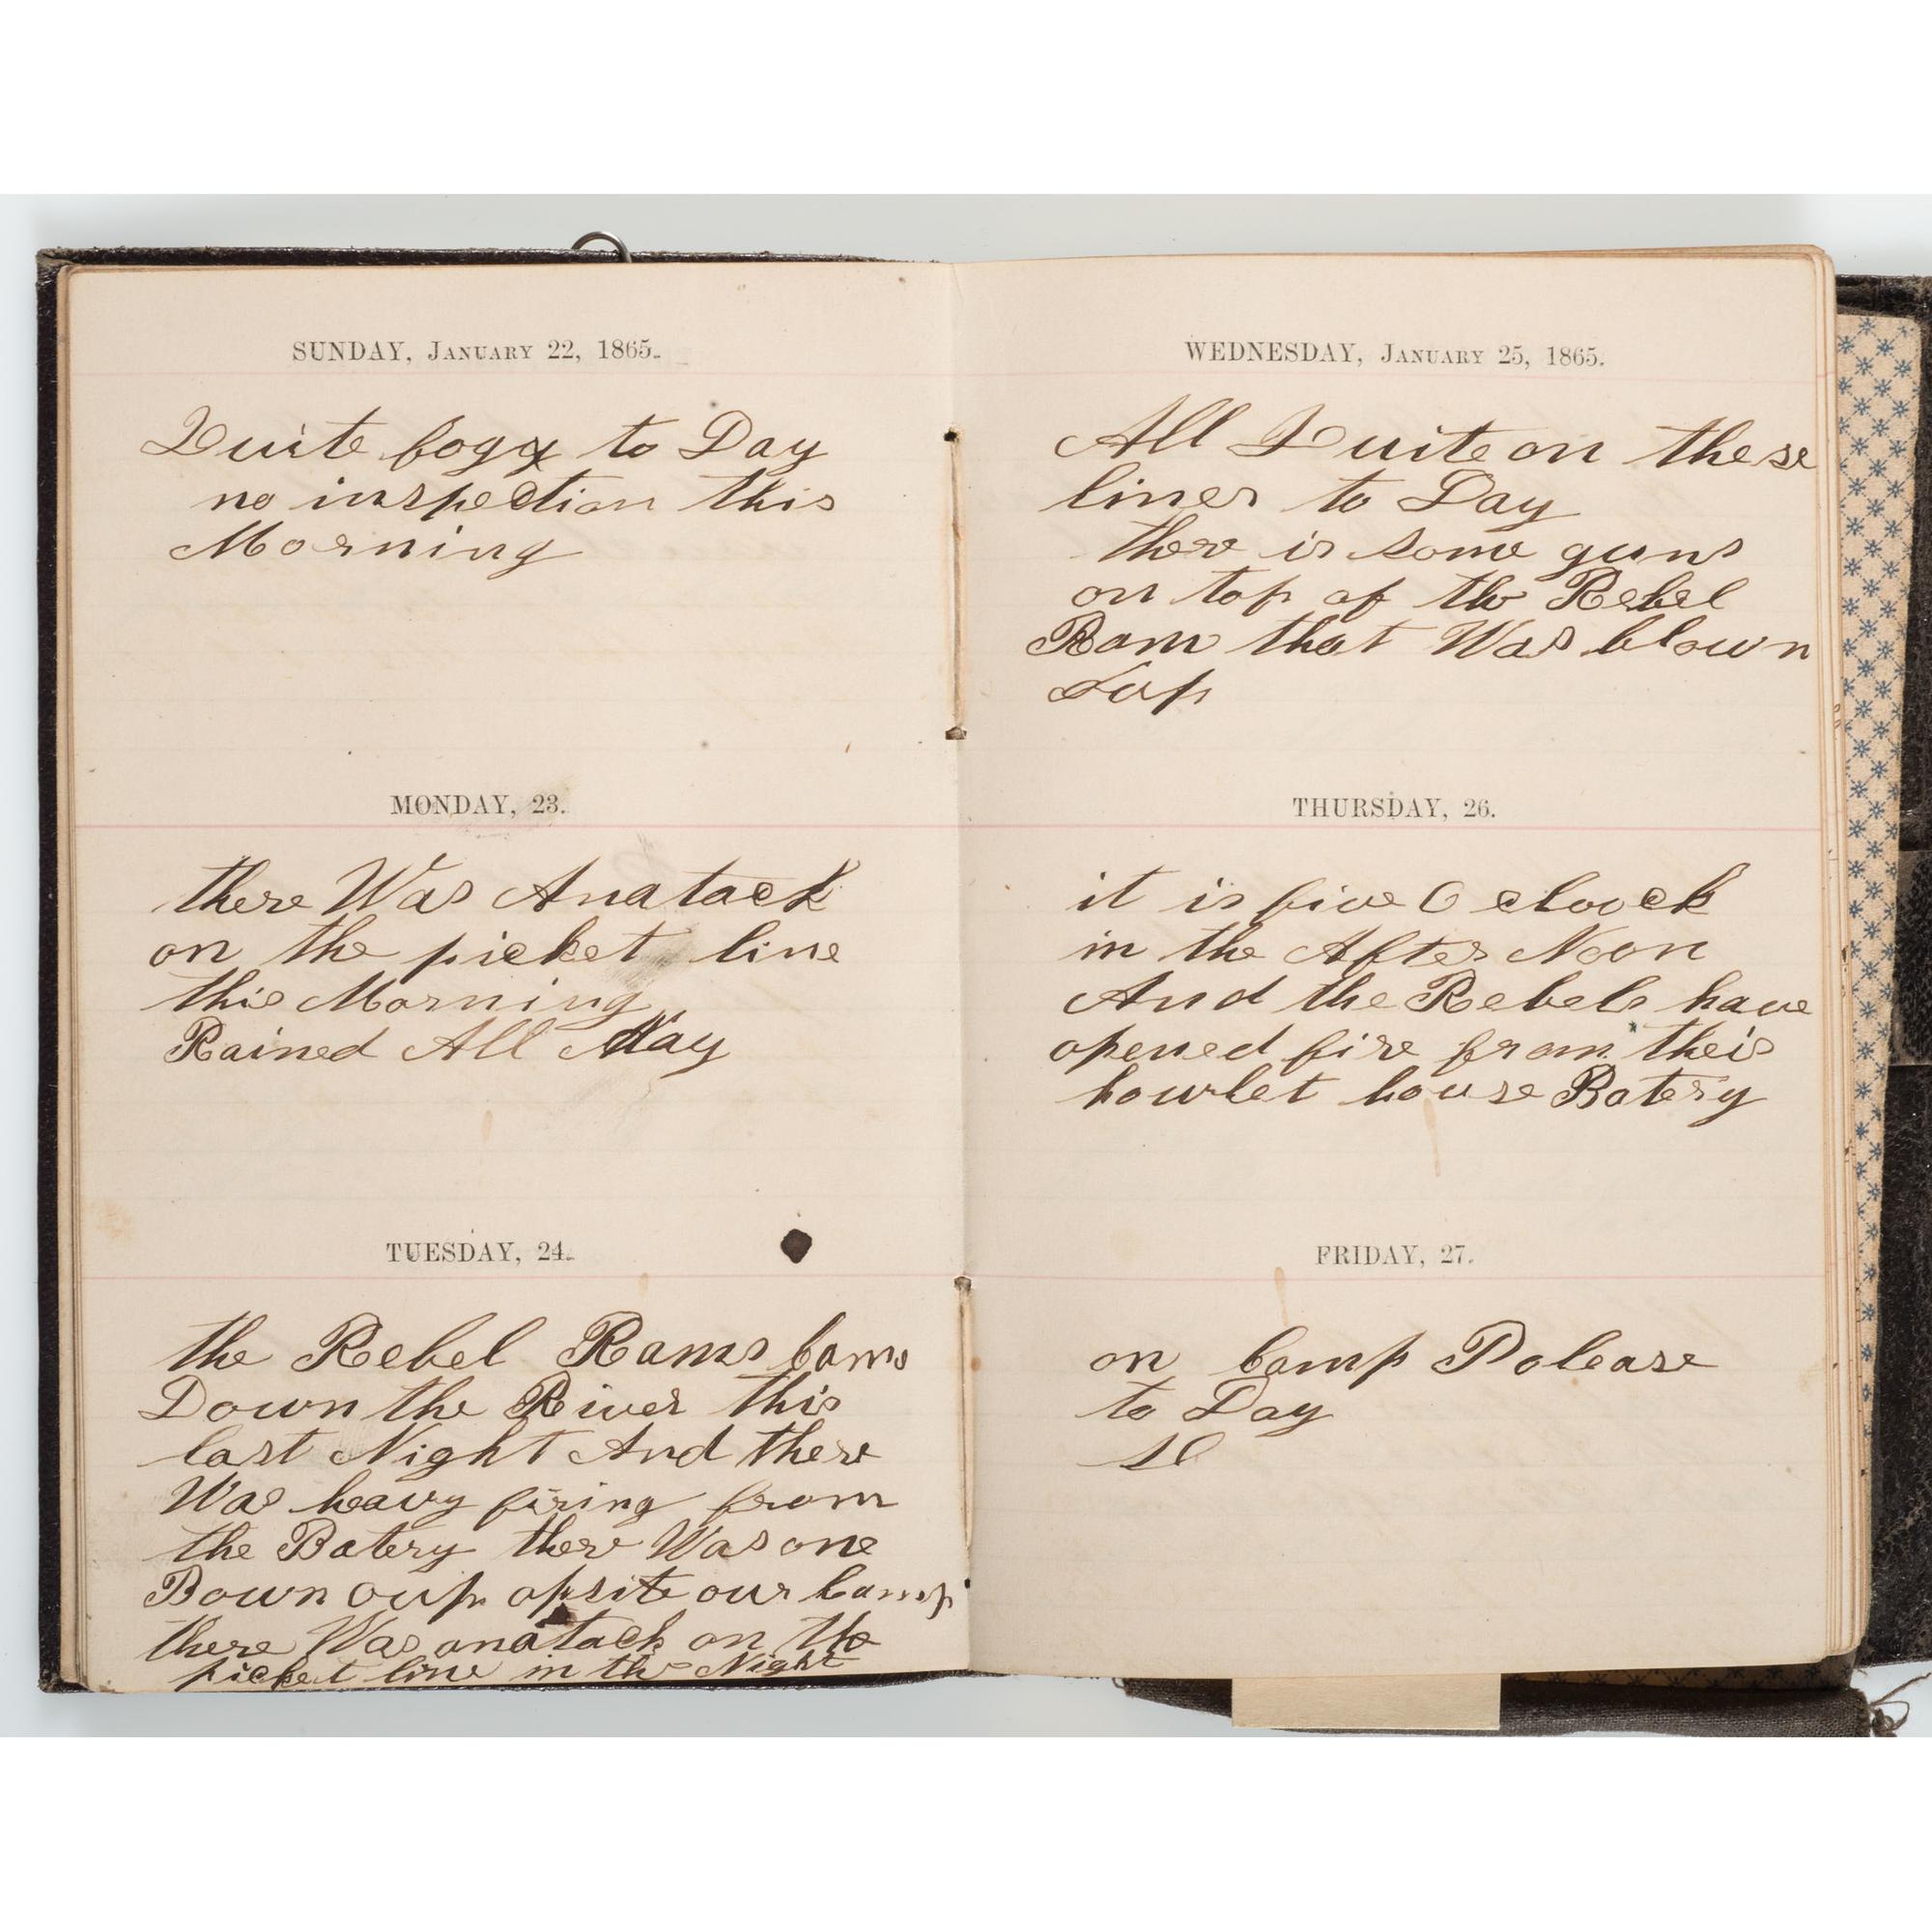 SUNDAY, JANUARY 22, 1865.
Quite fogy to Day
no inspection this
Morning
MONDAY, 23.
there Was An atack
on the picket line
this Morning
Rained All Day
TUESDAY, 24.
the Rebel Rams Came
Down the River this
last Night And there
Was heavy firing from
the Batery there Was one
Bown oup opsite our Camp
there Was an atack on the
picket line in the Night
WEDNESDAY, JANUARY 25, 1865.
All Quite on these
lines to Day
there is some guns
on top of the Rebel
Ram that Was blown
oup
THURSDAY, 26.
it is five O clock
in the After Noon
And the Rebels have
opened fire from their
howlet house Batery
FRIDAY, 27.
on Camp Polease
to Day